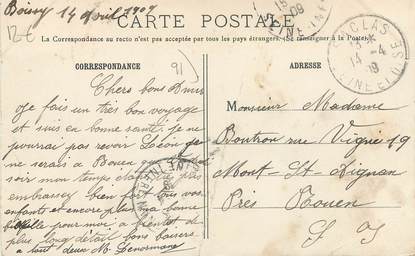 Boissy 14 avril 1909
CARTE POSTALE
La Correspondance au recto n'est pas acceptée par tous les pays étrangers. (Se renseigner à la Poste)
CORRESPONDANCE
ADRESSE
91
Chers bons Amis
Je fais un très bon voyage
et suis en bonne santé. Je ne
pourrai pas revoir Lucien je
ne serai à Rouen
soir mon temps
embrassez bien vos
enfants et encore plus ma bonne
à bientôt
plus long détail bons baisers
a tout deux M. Lenormand
Monsieur Madame
Boutron rue Vigné 19
Mont-St-Aignan
Près Rouen
S I
14 -4
09
SEINE ET OISE